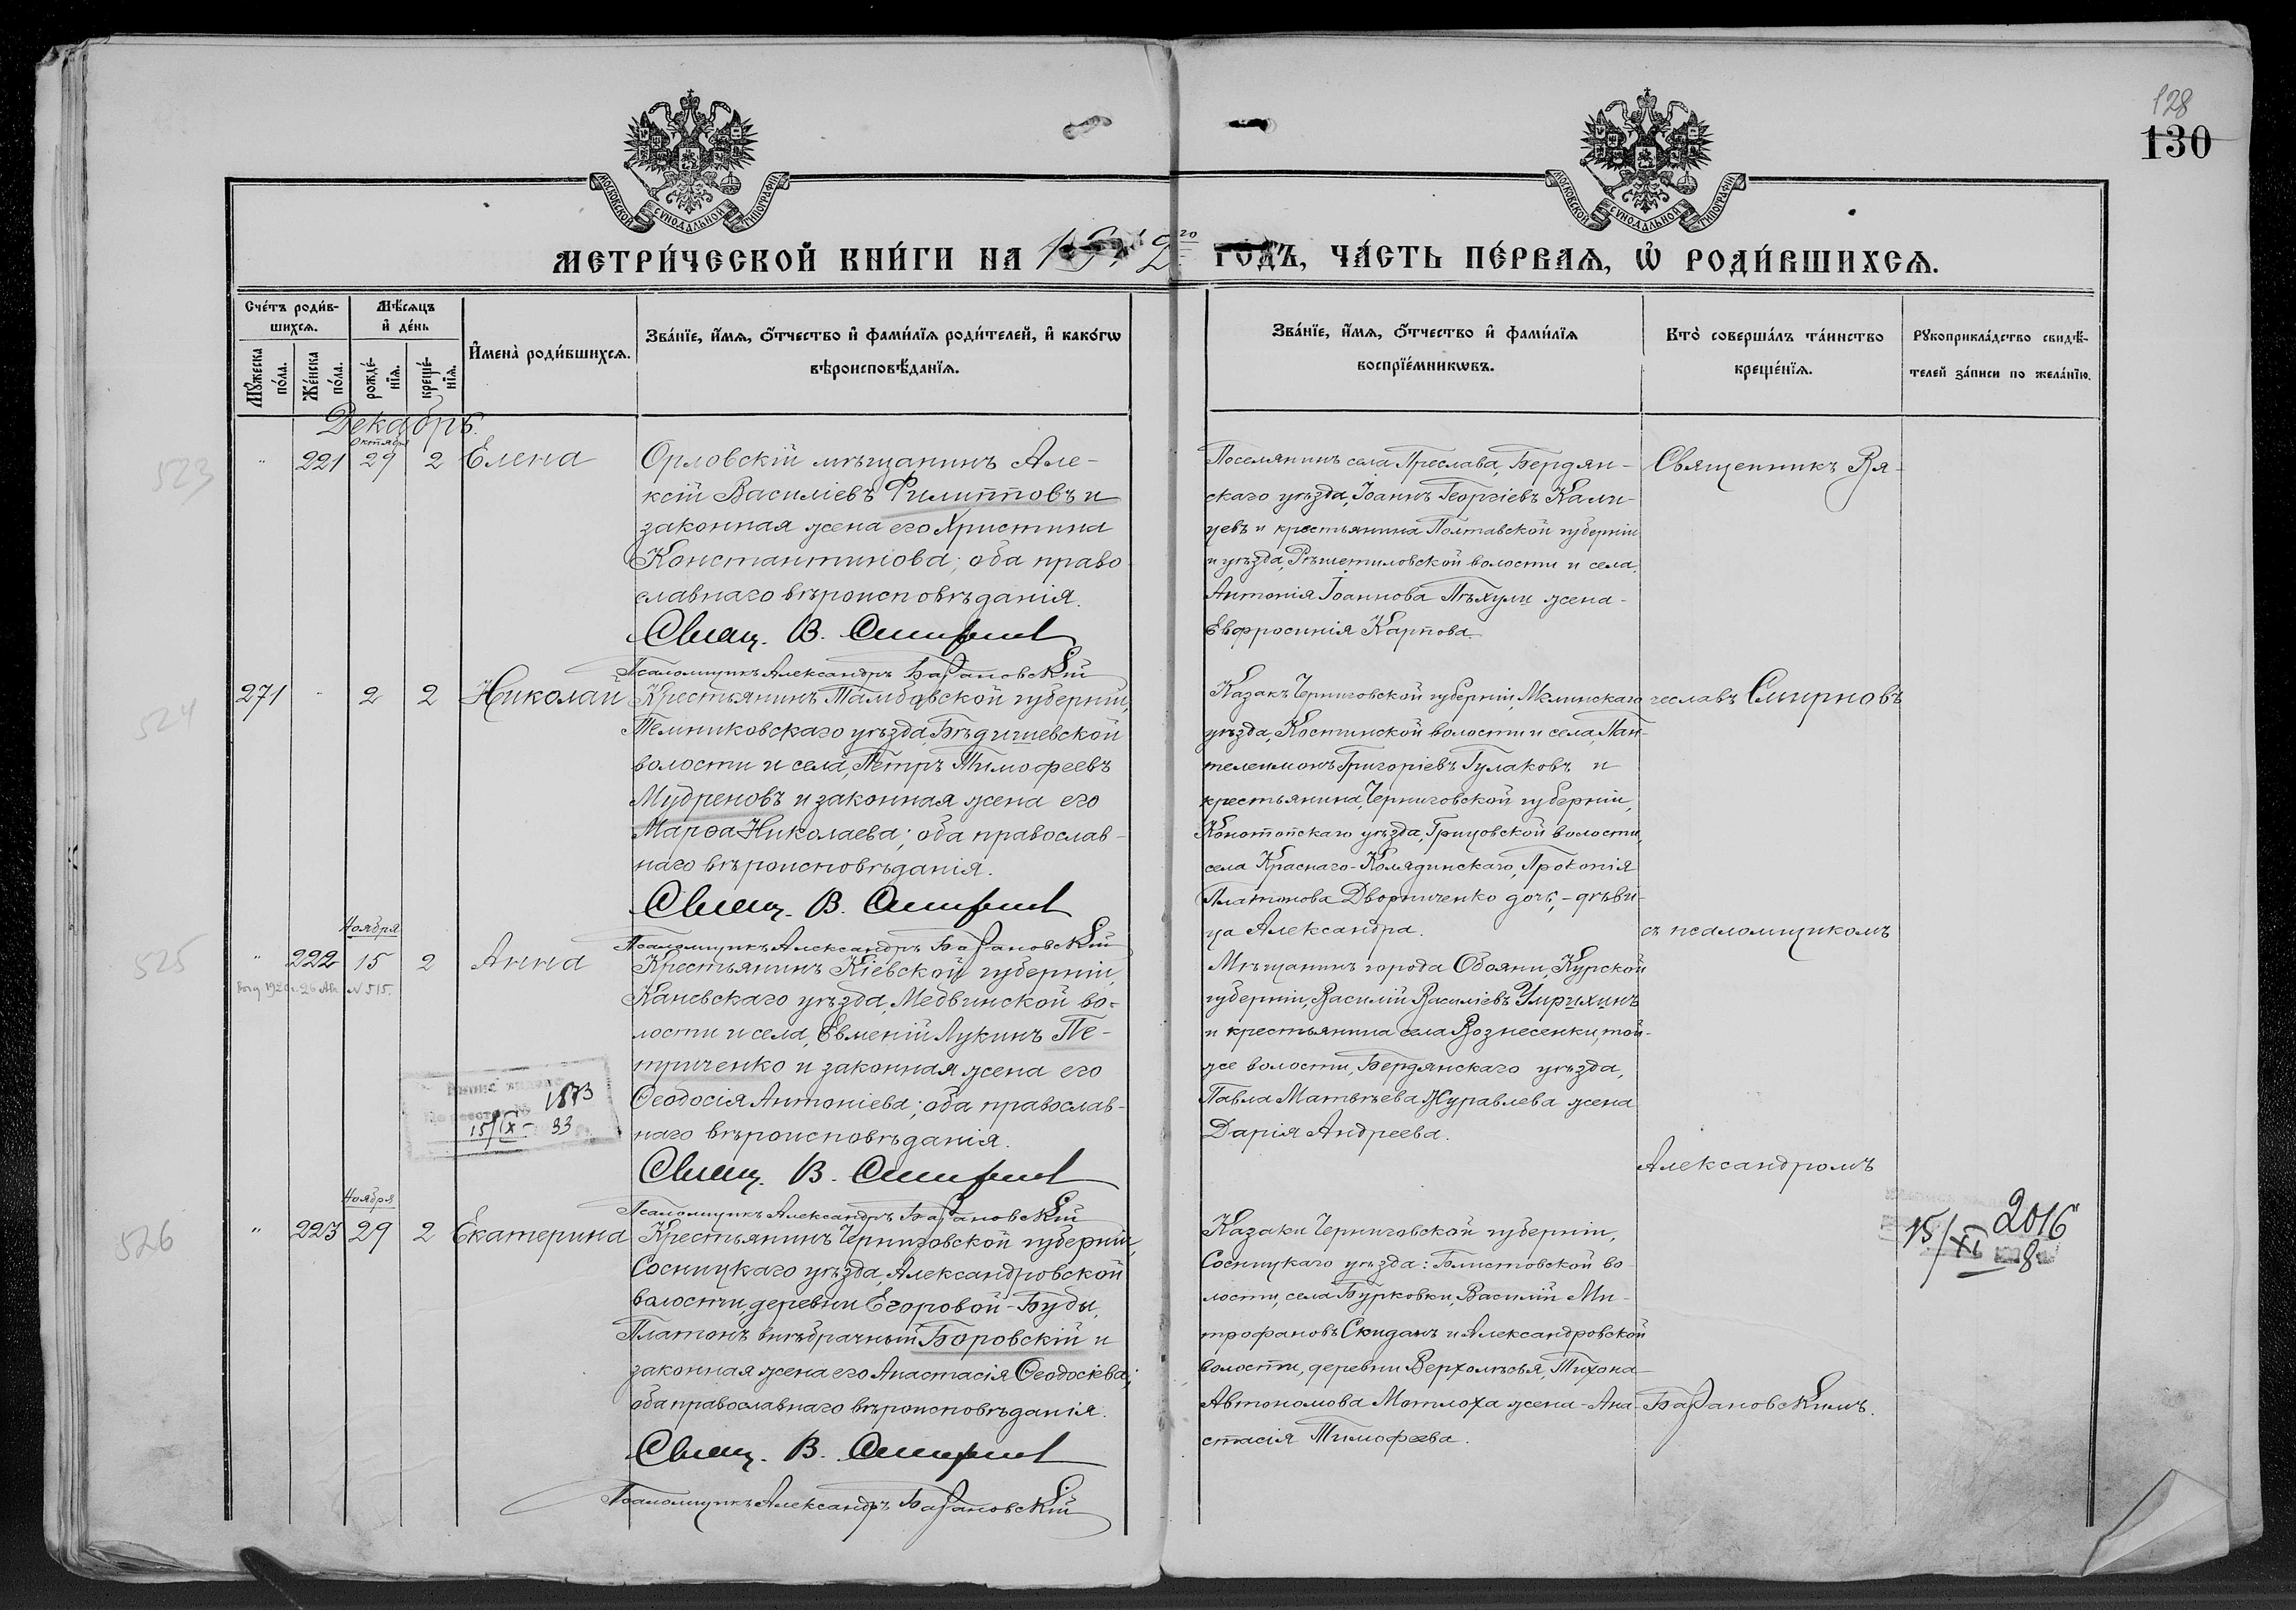 128
130
МОСКОВСКОЙ СѴНОДАЛЬНОЙ ТИПОГРАФІИ
МОСКОВСКОЙ СѴНОДАЛЬНОЙ ТИПОГРАФІИ
МЕТРИ́ЧЕСКОЙ КНИ́ГИ НА 19 2го ГОДЪ, ЧА́СТЬ ПЕ́РВАѦ, Ѡ҆ РОДИ́ВШИХСѦ.
Сче́тъ роди́в-
шихсѧ.
Мꙋ́жеска по́ла.
Же́нска по́ла.
Мѣ́сѧцъ
и҆ де́нь
рожде́-нїѧ.
креще́-нїѧ.
И҆мена̀ роди́вшихсѧ.
Зва́нїе, и҆́мѧ, ѻ҆́тчество и҆ фами́лїѧ роди́телей, и҆ како́гѡ
вѣроисповѣ́данїѧ.
Зва́нїе, и҆́мѧ, ѻ҆́тчество и҆ фами́лїѧ
воспрїе́мникѡвъ.
Кто̀ соверша́лъ та́инство
креще́нїѧ.
Рꙋкоприкла́дство свидѣ́-
телей за́писи по жела́нїю.
Декабрь.
523
Октября
" 221 29 2 Елена
Орловскій мѣщанинъ Але-
ксій Василіевъ Филипповъ и
законная жена его Христина
Константинова; оба право
славнаго вѣроисповѣданія.
Свящ. В. Смирнов
Псаломщикъ Александръ Барановскій
Поселянинъ села Преслава, Бердян-
скаго уѣзда, Іоаннъ Георгіевъ Калы-
цевъ и крестьянина Полтавской губерніи
и уѣзда, Рѣшетиловской волости и села
Антонія Іоаннова Пѣхули жена-
Евфросинія Карпова.
Священникъ Вя-
524
271 " 2 2 Николай
Крестьянинъ Тамбовской губерніи,
Темниковскаго уѣзда, Бѣдишевской
волости и села, Петръ Тимофеевъ
Мудреновъ и законная жена его
Марѳа Николаева; оба православ-
наго вѣроисповѣданія.
Свящ. В. Смирнов
Псаломщикъ Александръ Барановскій
Казакъ Черниговской губерніи, Мглинскаго
уѣзда, Костинской волости и села, Пан-
телеимонъ Григоріевъ Гулаковъ и
крестьянина, Черниговской губерніи,
Конотопскаго уѣзда, Грицовской волости,
села Краснаго-Колядинскаго, Прокопія
Платонова Дворниченко дочь,-дѣви-
ца Александра.
чеславъ Смирновъ
съ псаломщикомъ
525
Ноября
" 222 15 2 Анна
N 515.
1873
15/IX - 33
Крестьянинъ Кіевской губерніи,
Каневскаго уѣзда, Медвинской во-
лости и села, Евменій Лукинъ Пе-
триченко и законная жена его
Ѳеодосія Антоніева; оба православ-
наго вѣроисповѣданія.
Свящ. В. Смирнов
Псаломщикъ Александръ Барановскій
Мѣщанинъ города Обояни, Курской
губерніи, Василій Василіевъ Умрихинъ
и крестьянина села Вознесенки, той-
же волости, Бердянскаго уѣзда,
Павла Матвѣева Журавлева жена
Дарія Андреева.
Александромъ
526
Ноября
" 223 29 2 Екатерина
Крестьянинъ Черниговской губерніи,
Сосницкаго уѣзда, Александровской
волости, деревни Егоровой-Буды,
Платонъ внѣбрачный Боровскій и
законная жена его Анастасія Ѳеодосіева;
оба православнаго вѣроисповѣданія.
Свящ. В. Смирнов
Псаломщикъ Александръ Барановскій
Казаки Черниговской губерніи,
Сосницкаго уѣзда: Блистовской во
лости, села Бурковки, Василій Ми-
трофановъ Скиданъ и Александровской
волости, деревни Верхолѣсья, Тихона
Автономова Мотлоха жена-Ана-
стасія Тимофеева.
Барановскимъ.
2016
15/XI 8